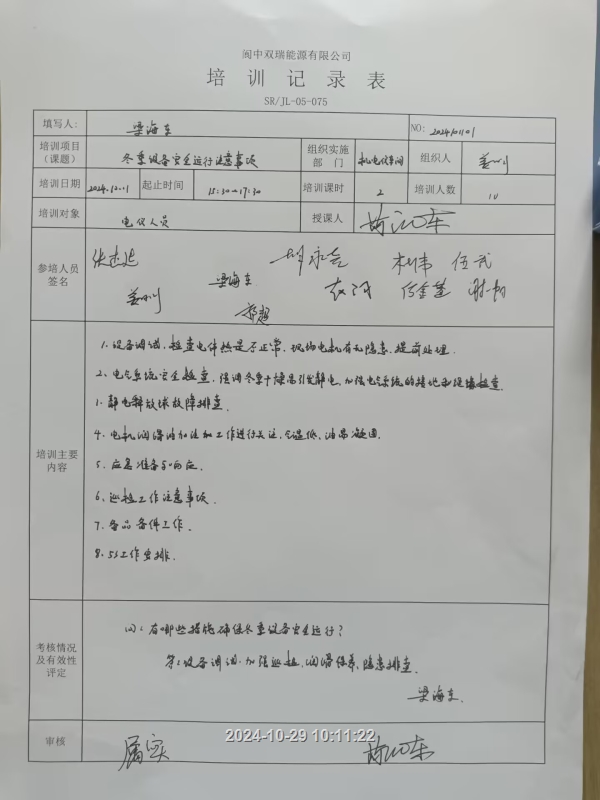 阆中双瑞能源有限公司
培训记录表
SR/JL-05-075
填写人: 梁海东 NO: 2024101101
培训项目（课题） 冬季设备安全运行注意事项 组织实施部门 机电仪车间 组织人
培训日期 2024.12.11 起止时间 15:30-17:30 培训课时 2 培训人数 10
培训对象 电仪人员 授课人
参培人员签名
梁海东
培训主要内容
1、设备调试，检查电伴热是否正常，现场电机有无隐患，提前处理.
2、电气系统安全检查，强调冬季干燥易引发静电，加强电气系统的接地和设备检查
1、静电释放球故障排查.
4、电机润滑油加注加工作进行关注，气温低，油易凝固.
5、应急准备与响应.
6、巡检工作注意事项.
7、备品备件工作.
8、5S工作安排.
考核情况及有效性评定
问：有哪些措施确保冬季设备安全运行？
答：设备调试，加强巡检，润滑保养，隐患排查.
梁海东
审核 属实
2024-10-29 10:11:22